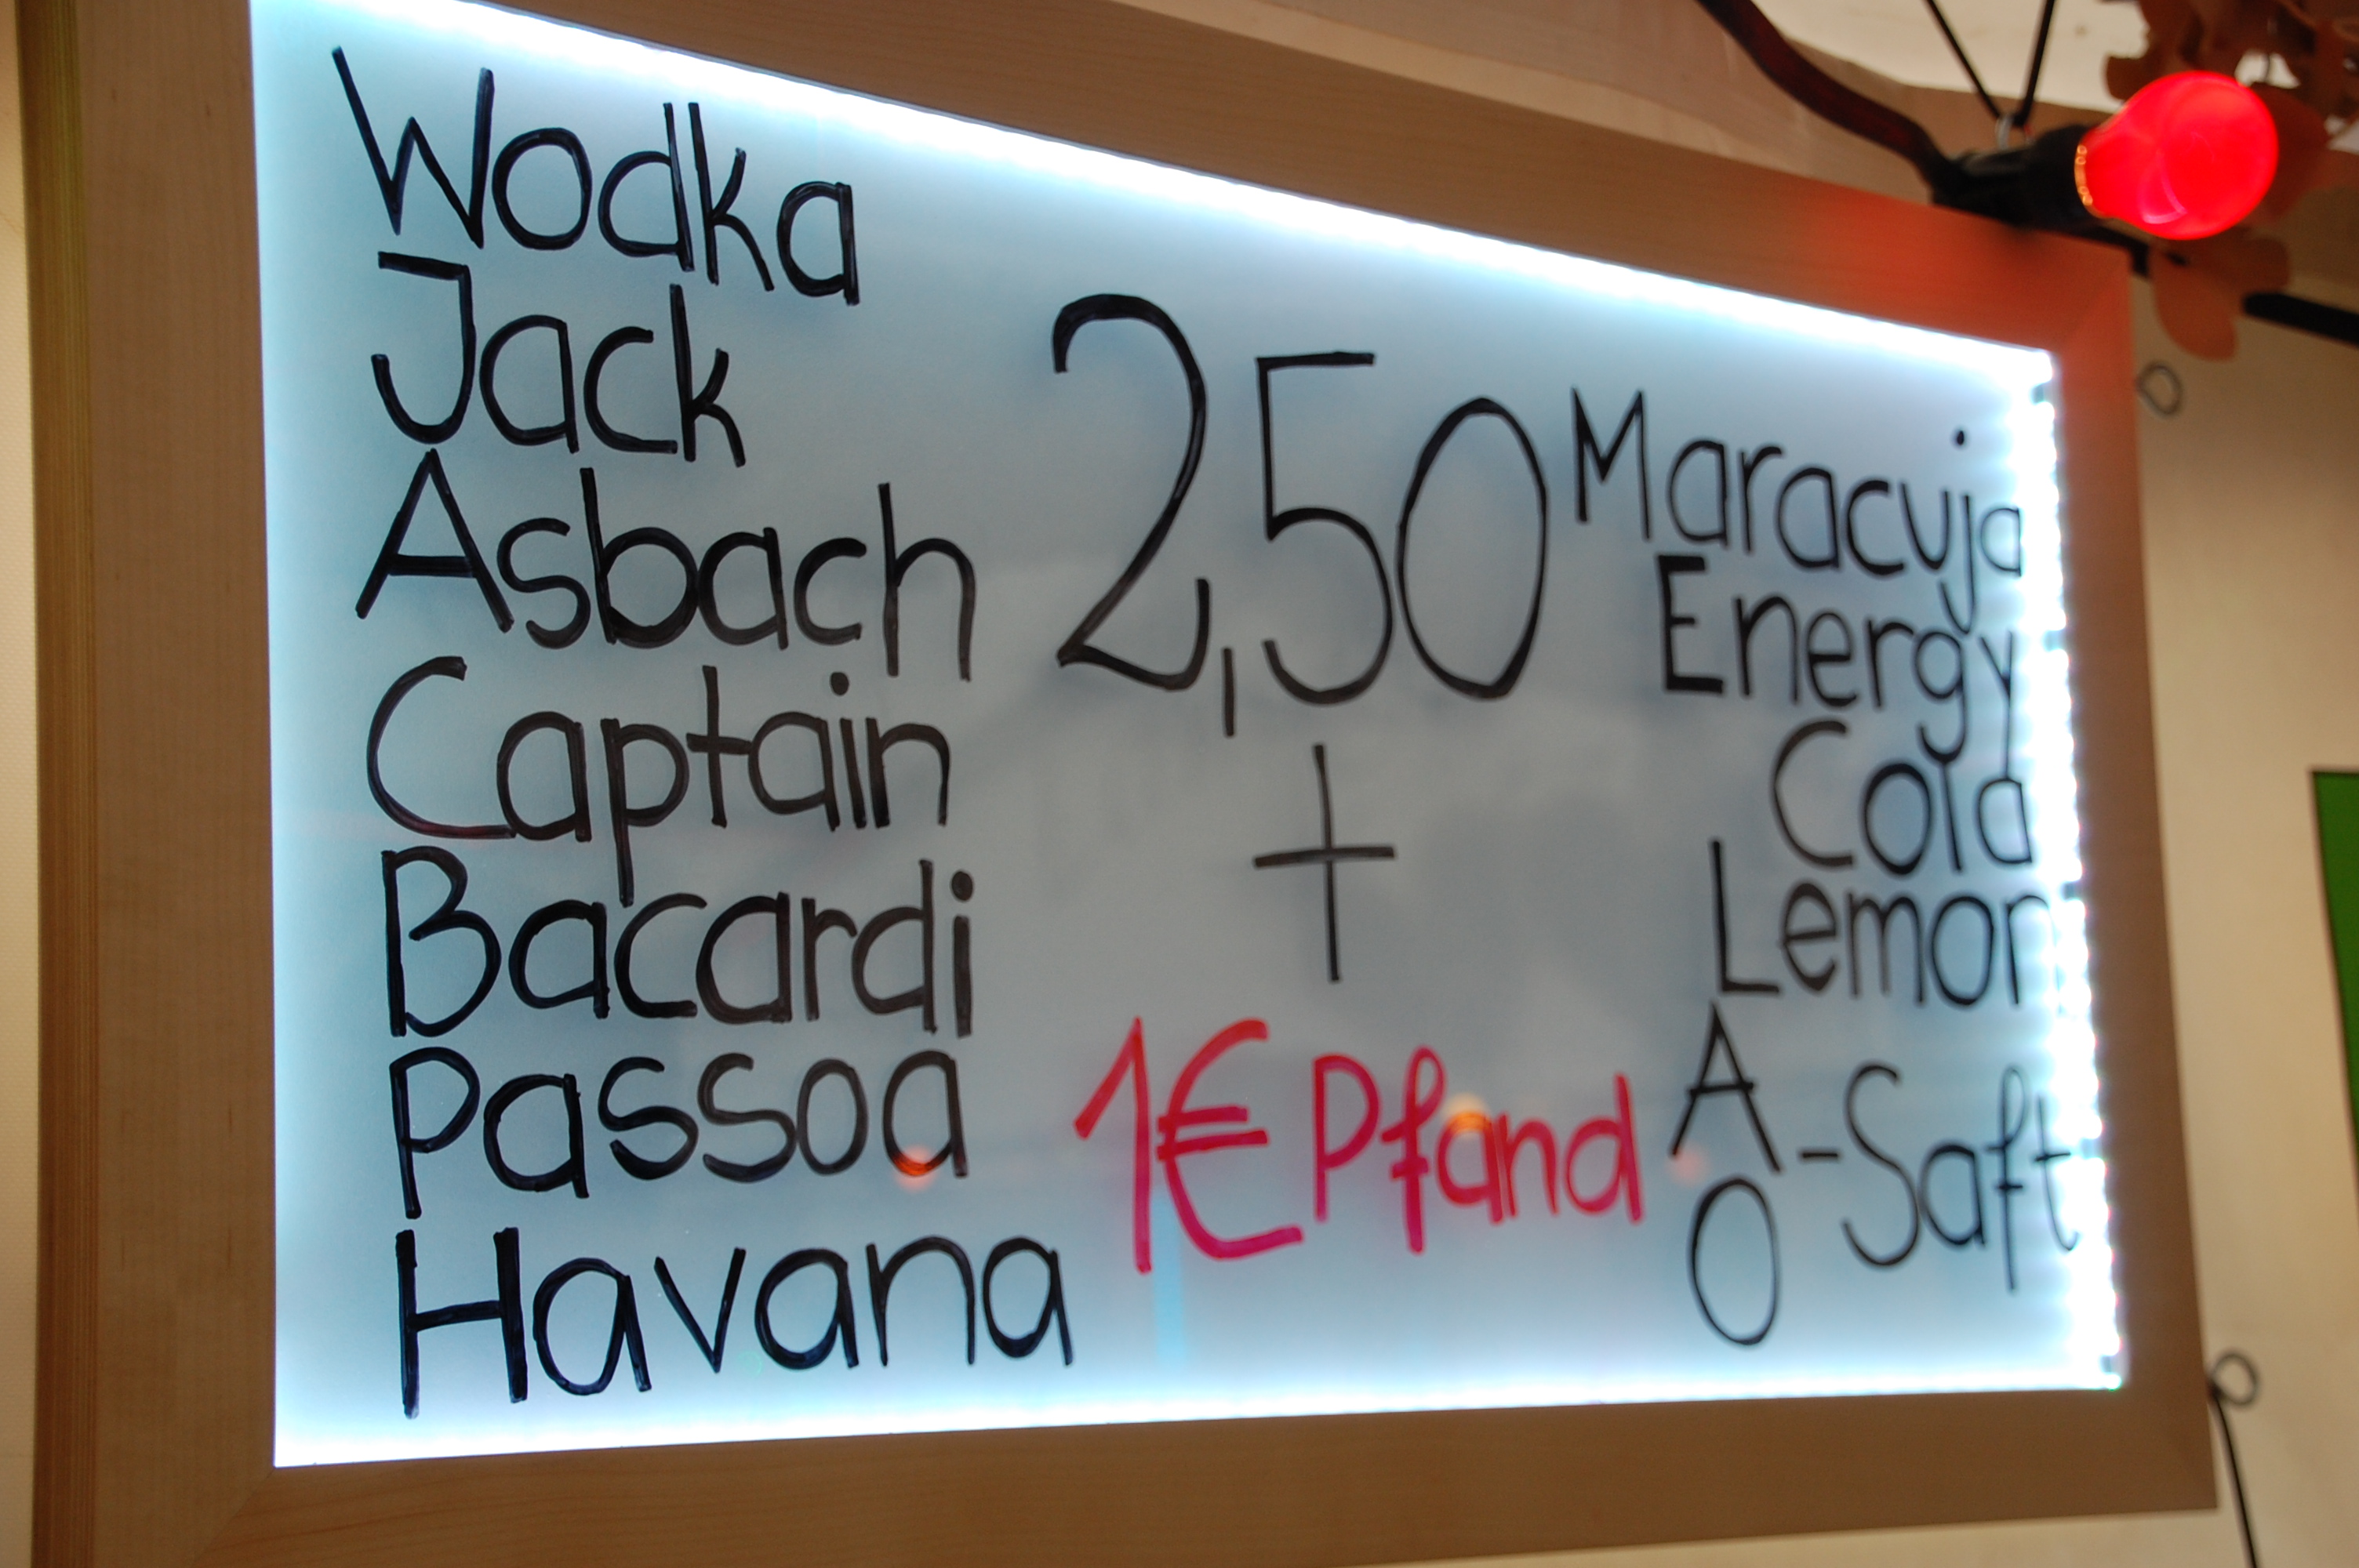 Wodka
Jack
Asbach
Captain
Bacardi
Passoa
Havana
2,50
+
1€ Pfand
Maracuja
Energy
Cola
Lemon
A
-Saft
O